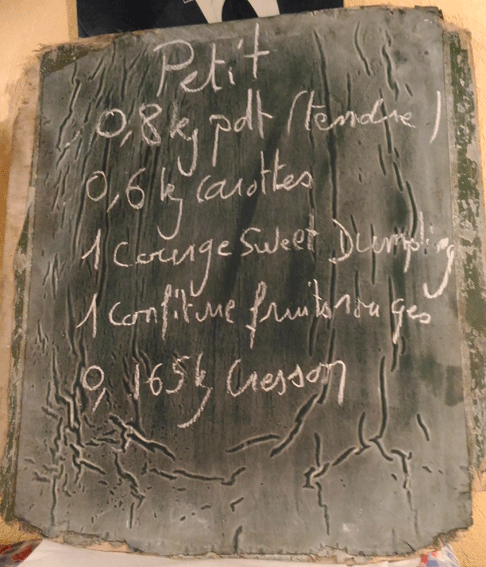 Petit
0,8 kg pdt (tendre)
0,6 kg carottes
1 Courge Sweet Dumpling
1 confiture fruits rouges
0,165 kg Cresson